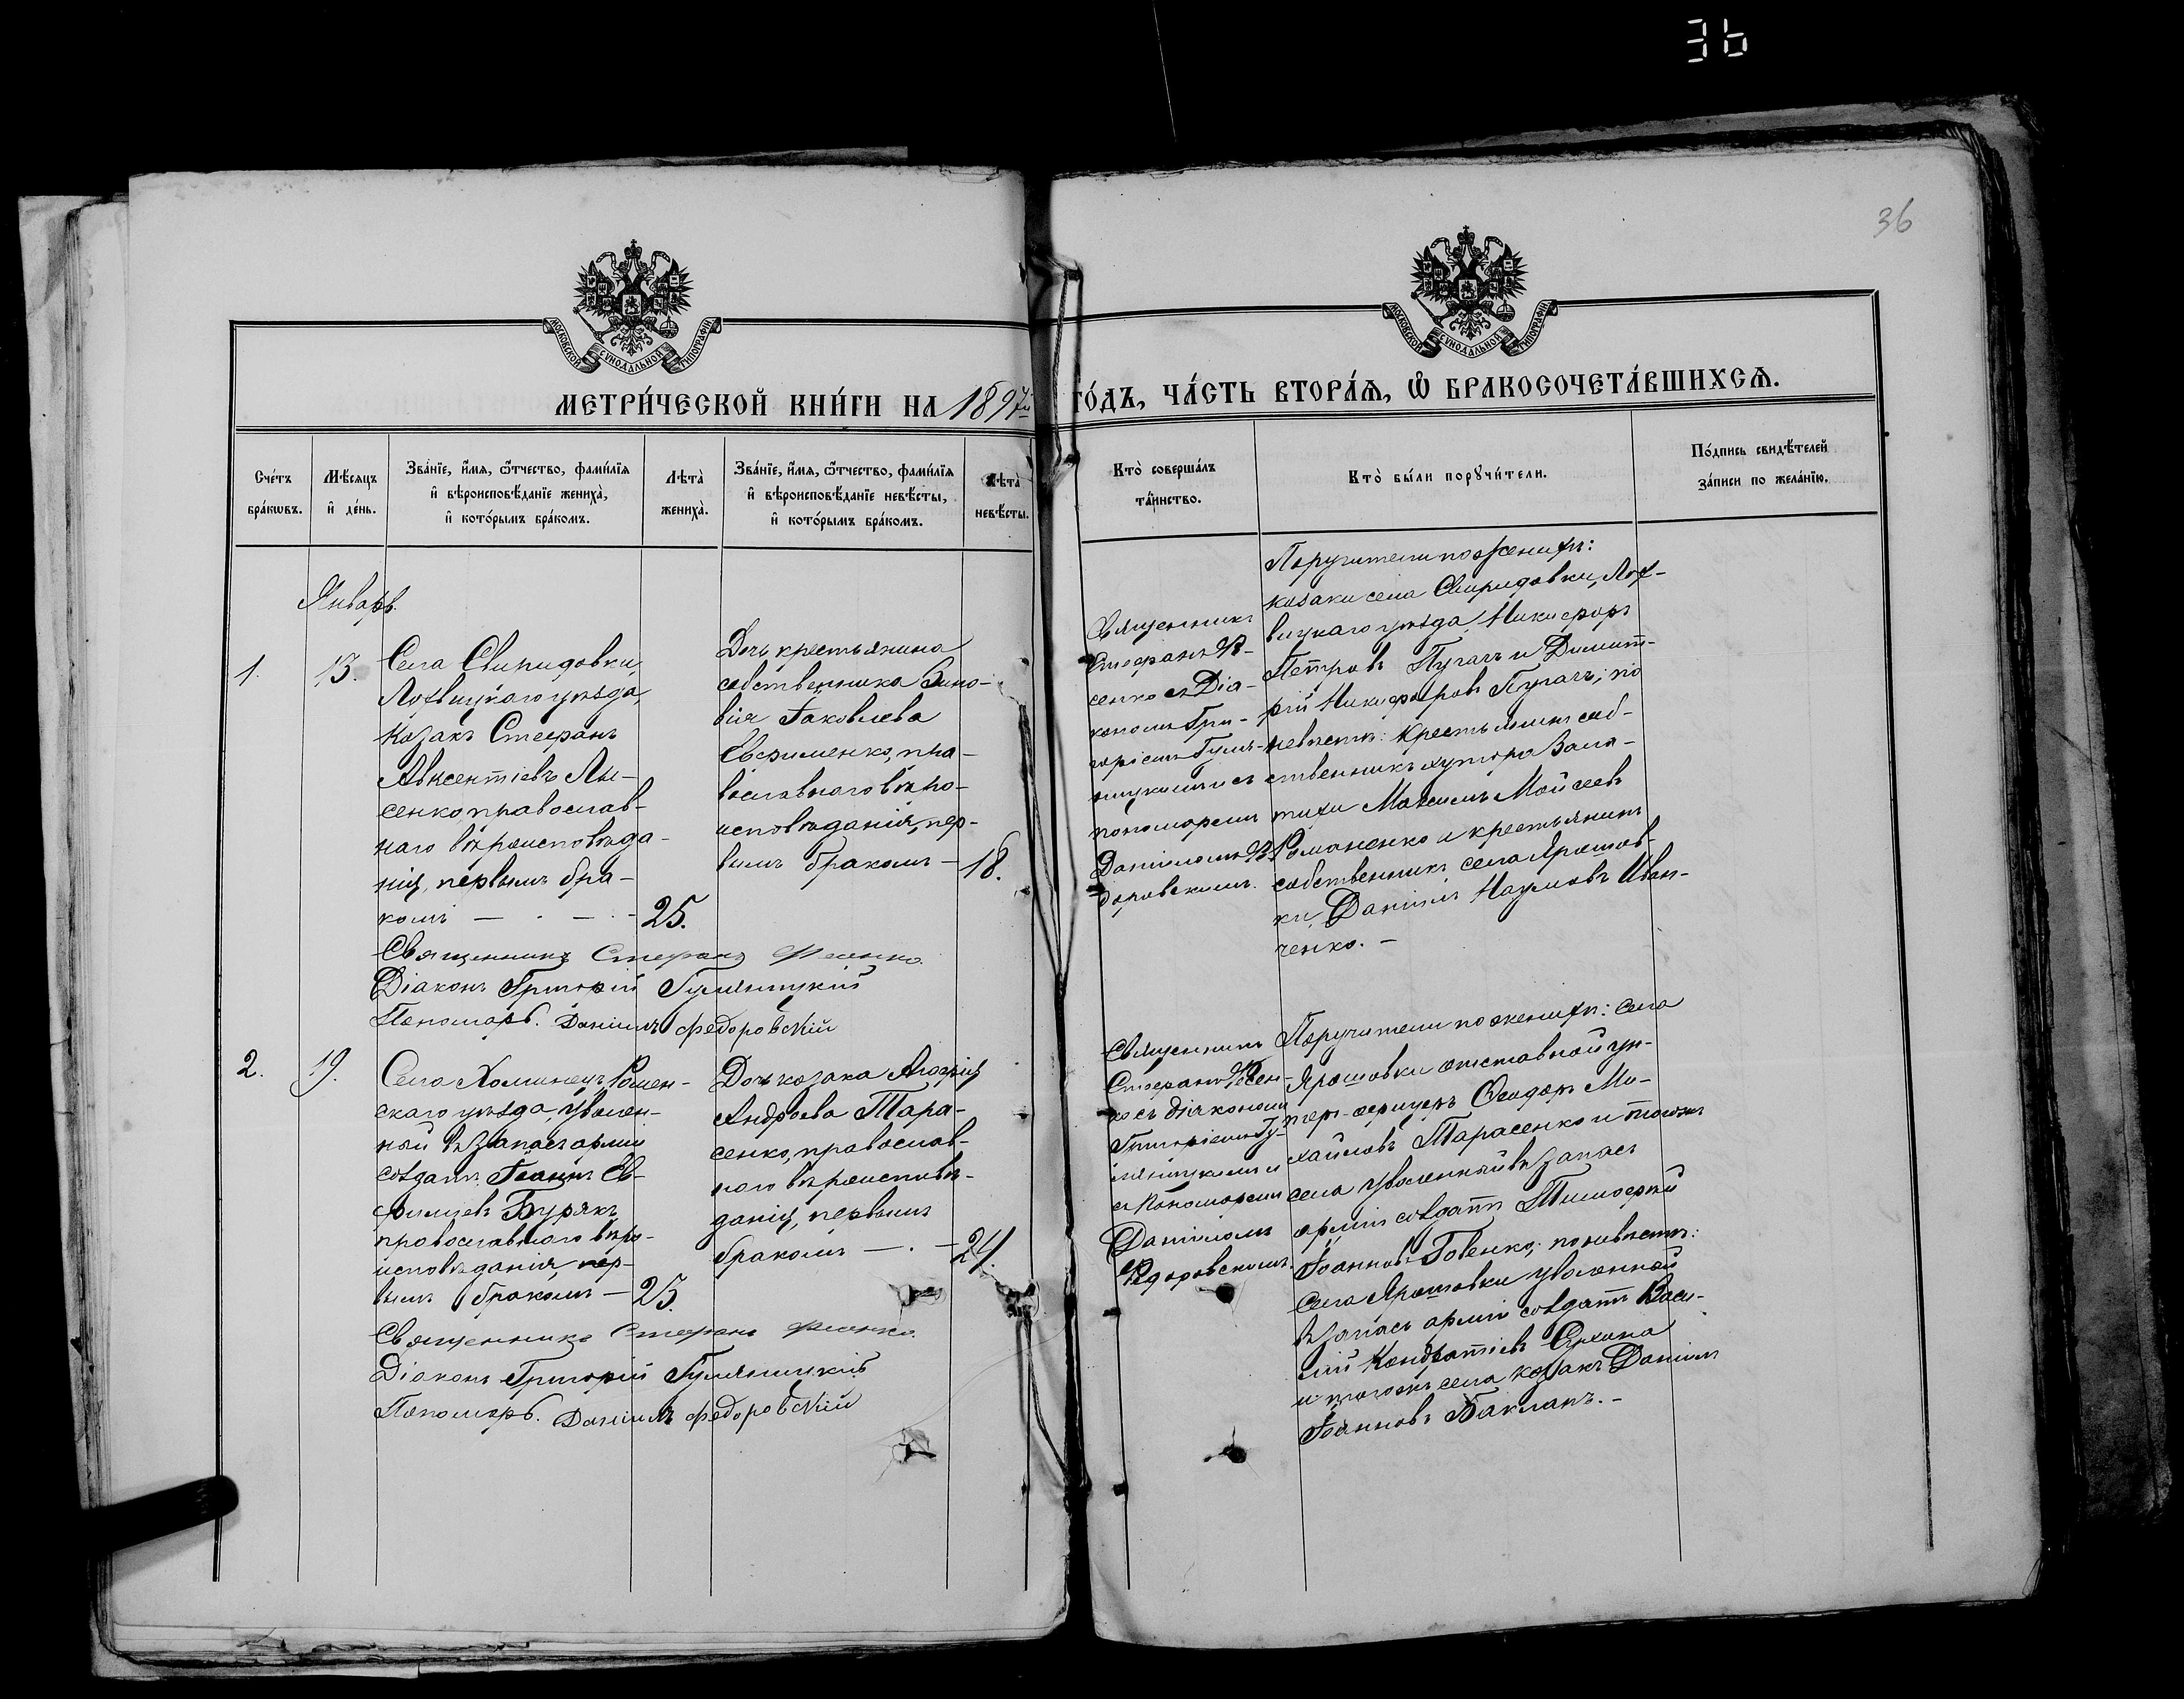 36
36
МОСКОВСКОЙ СѴНОДАЛЬНОЙ ТИПОГРАФІИ
МОСКОВСКОЙ СѴНОДАЛЬНОЙ ТИПОГРАФІИ
МЕТРИ́ЧЕСКОЙ КНИ́ГИ НА 1897й
ГО́ДЪ, ЧА́СТЬ ВТОРА́Я, Ѿ БРАКОСОЧЕТА́ВШИХСЯ.
Сче́тъ
бра́кѡвъ.
Мѣ́сяцъ
и҆ де́нь.
Зва́нїе, и҆́мя, ѻ҆́тчество, фами́лїя
и҆ вѣроисповѣ́данїе жениха̀,
и҆ кото́рымъ бра́комъ.
Лѣта̀
жениха̀.
Зва́нїе, и҆́мя, ѻ҆́тчество, фами́лїя
и҆ вѣроисповѣ́данїе невѣ́сты,
и҆ кото́рымъ бра́комъ.
Лѣта̀
невѣ́сты.
Кто̀ соверша́лъ
та́инство.
Кто̀ бы́ли порꙋчи́тели.
По́дпись свидѣ́телей
за́писи по жела́нїю.
Январь.
1.
13.
Села Свиридовки,
Лохвицкаго уѣзда,
козакъ Стефанъ
Авксентіевъ Лы-
сенко, православ-
наго вѣроисповѣда-
нія, первымъ бра-
комъ — . — . -
25.
Дочь крестьянина
собственника Зино-
вія Іаковлева
Евфименко, пра-
вославнаго вѣро-
исповѣданія, пер-
вымъ бракомъ —
18.
Священникъ
Стефанъ
сенко съ Діа-
кономъ Гри-
горіемъ Гумя-
ницкимъ и съ
пономаремъ
Даніиломъ Ѳе-
доровскимъ.
Поручители по женихѣ:
козаки села Свиридовки, Лох-
вицкаго уѣзда, Никифоръ
Петровъ Пугачъ и Димит-
рій Никифоровъ Пугачъ; по
невѣстѣ: крестьянинъ соб-
ственникъ хутора Зала-
тихи Максимъ Мойсеевъ
Романенко и крестьянинъ
собственникъ села Ярошов-
ки, Даніилъ Наумовъ Иван-
ченко. —
Священникъ Стефанъ
Діаконъ Григорій Гумяницкій
Пономарь. Даніилъ Федоровскій
2.
19.
Села Хоминецъ, Ромен-
скаго уѣзда, уволен-
ный въ запасъ арміи
солдатъ Іоаннъ Ев-
фиміевъ Бурякъ
православнаго вѣро-
исповѣданія, пер-
вымъ бракомъ —
25.
Дочь козака Агафія
Андреева Тара-
сенко, православ-
наго вѣроисповѣ-
данія, первымъ
бракомъ — . —
24.
Священникъ
Стефанъ
ко съ діакономъ
Григоріемъ Гу-
мяницкимъ и
съ пономаремъ
Даніиломъ
Ѳедоровскимъ.
Поручители по женихѣ: села
Ярошовки отставной ун-
теръ-офицеръ Ѳеодоръ Ми-
хайловъ Тарасенко и тогожъ
села уволенный въ запасъ
арміи солдатъ Тимофей
Іоанновъ Говенко; по невѣстѣ:
села Ярошовки уволенный
въ запасъ арміи солдатъ Васи-
лій Кондратіевъ
и тогожъ села козакъ Даніилъ
Іоанновъ Бакланъ. —
Священникъ Стефанъ
Діаконъ Григорій Гумяницкій
Пономарь. Даніилъ Федоровскій